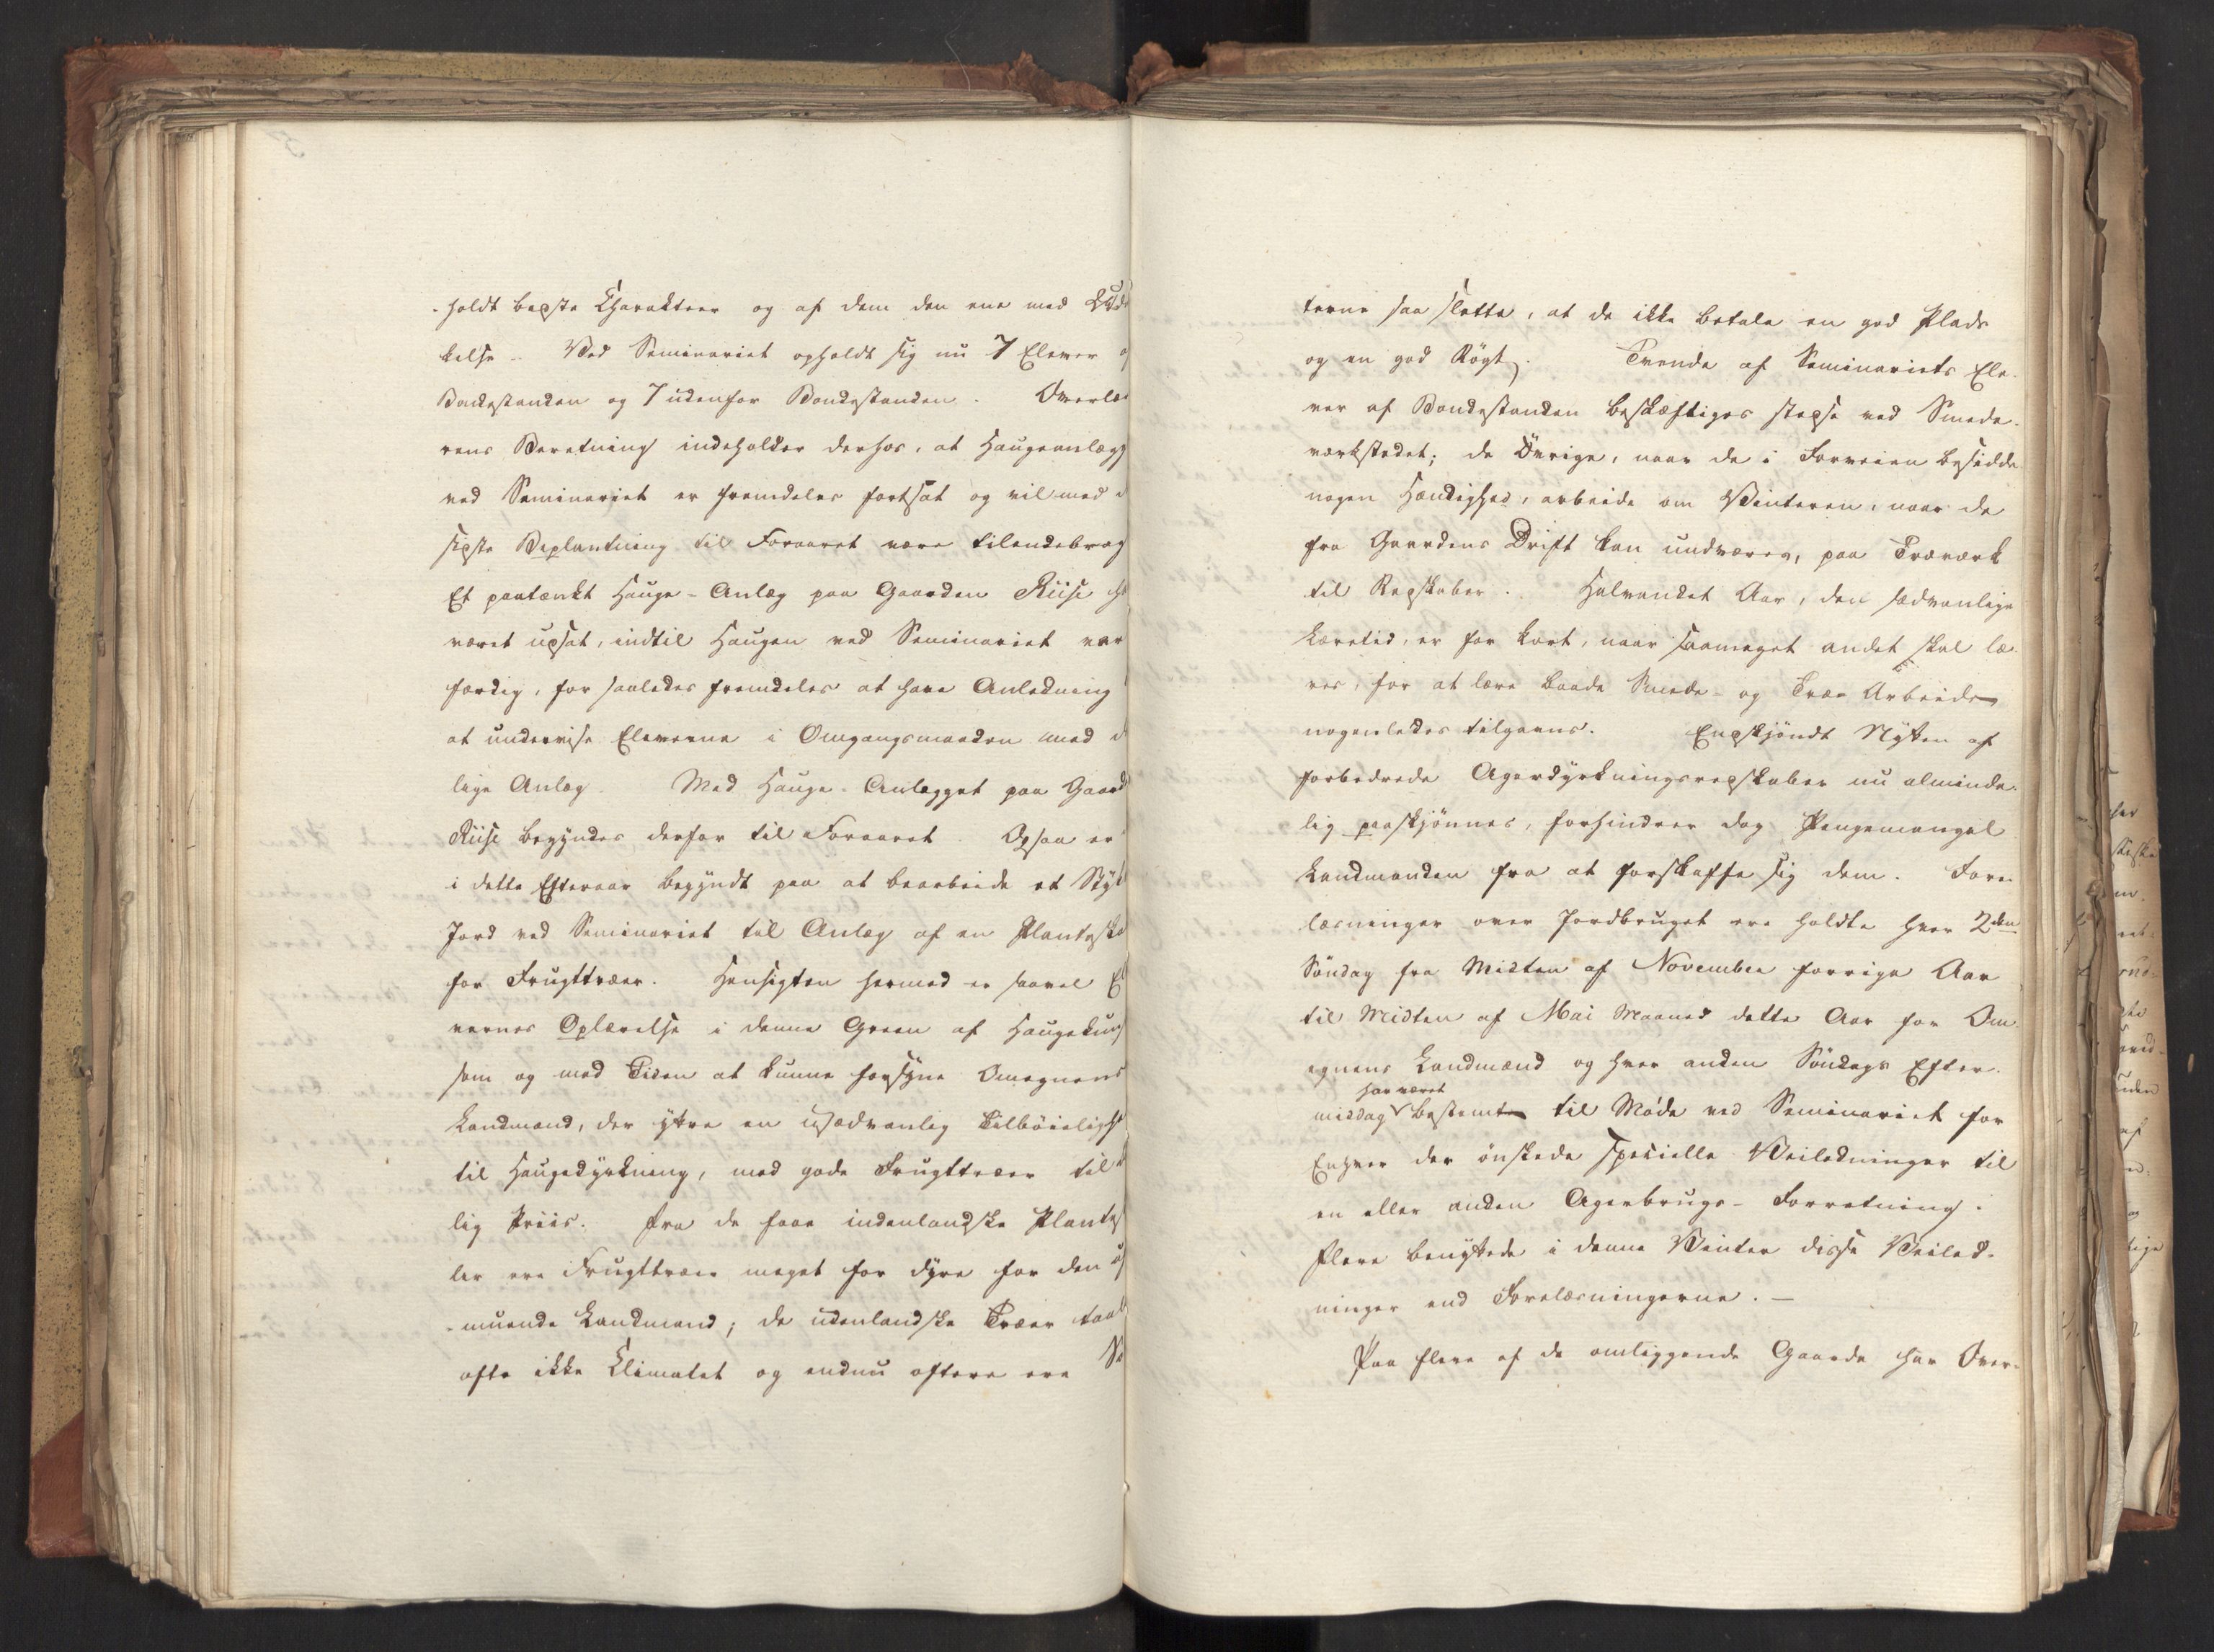 -holdt bedste Charakteer og af dem den ene med Udmær
kelse. Ved Seminariet opholdt sig nu 7 Elever af
Bondestanden og 7 udenfor Bondestanden. Overlæ
rens Beretning indeholder derhos, at Haugeanlægg
ved Seminariet er fremdeles fortsat og vil med
sidste Beplantning til Foraaret være tilendebrag
Et paatænkt Hauge-Anlæg paa Gaarden Riise ha
været udsat, indtil Haugen ved Seminariet var
færdig, for saaledes fremdeles at have Anledning
at undervise Eleverne i Omgangsmaaden med
lige Anlæg. Med Hauge-Anlægget paa Gaard
Riise begyndes derfor til Foraaret. Ogsaa er
i dette Efteraar begyndt paa at bearbeide et Styk
Jord ved Seminariet til Anlæg af en Planteskole
for Frugttræer. Hensigten hermed er saavel El
vernes Oplærelse i denne Green af Haugekunst
som og med Tiden at kunne forsyne Omegnens
Landmænd, der yttre en usædvanlig Tilbøielighed
til Haugedyrkning, med gode Frugttræer til
lig Priis. Fra de faae indenlandske Plantesko
ler ere Frugttræer meget for dyre for den ufor
-muende Landmand; de udenlandske Træer taale
ofte ikke Climatet og endnu oftere ere
terne saa slette, at de ikke betale en god Plads
og en god Røgt. Tvende af Seminariets Ele-
ver af Bondestanden beskæftiges stedse ved Smede-
værkstedet; de Øvrige, naar de i Forveien besidde
nogen Hændighed, arbeide om Vinteren, naar de
fra Gaardens Drift kan undværes, paa Træværk
til Redskaber. Halvandet Aar, den sædvanlige
Læretid, er for kort, naar saameget andet skal læ-
res, for at lære baade Smede- og Træe Arbeide
nogenledes tilgavns. Endskjøndt Nytten af
forbedrede Agerdyrkningsredskaber nu alminde-
lig paaskjønnes, forhindrer dog Pengemangel
Landmanden fra at forskaffe sig dem. Fore-
læsninger over Jordbruget ere holdte hver 2den
Søndag fra Midten af November forrige Aar
til Midten af Mai Maaned dette Aar for Om-
egnens Landmænd og hver anden Søndags Efter-
har været
middag bestemt til Møde ved Seminariet for
Enhver der ønskede specielle Veiledninger til
en eller anden Agerbrugs-Forretning.
Flere benyttede i denne Vinter disse Veiled-
ninger end Forelæsningerne. —
Paa flere af de omliggende Gaarde har Over-